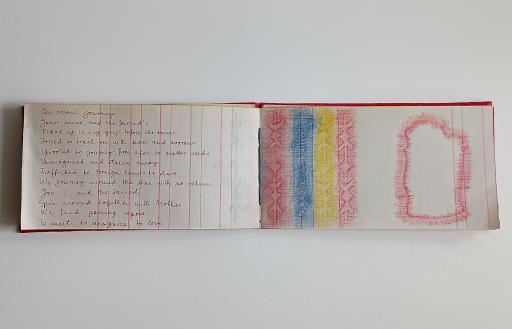 Our cosmic journey
Yours, mine, and the Sacred's
Picked up in icy grip before the
Forced to trail on with tears and sorrow
Uprooted to journey from afar to scatter seeds
Unrecognized and stolen away
Trafficked to foreign lands to slave
We journey around the star with no return
You, I, and the Sacred
Spin around together with Mother
We find passing repose
To meet, to recognize, to love